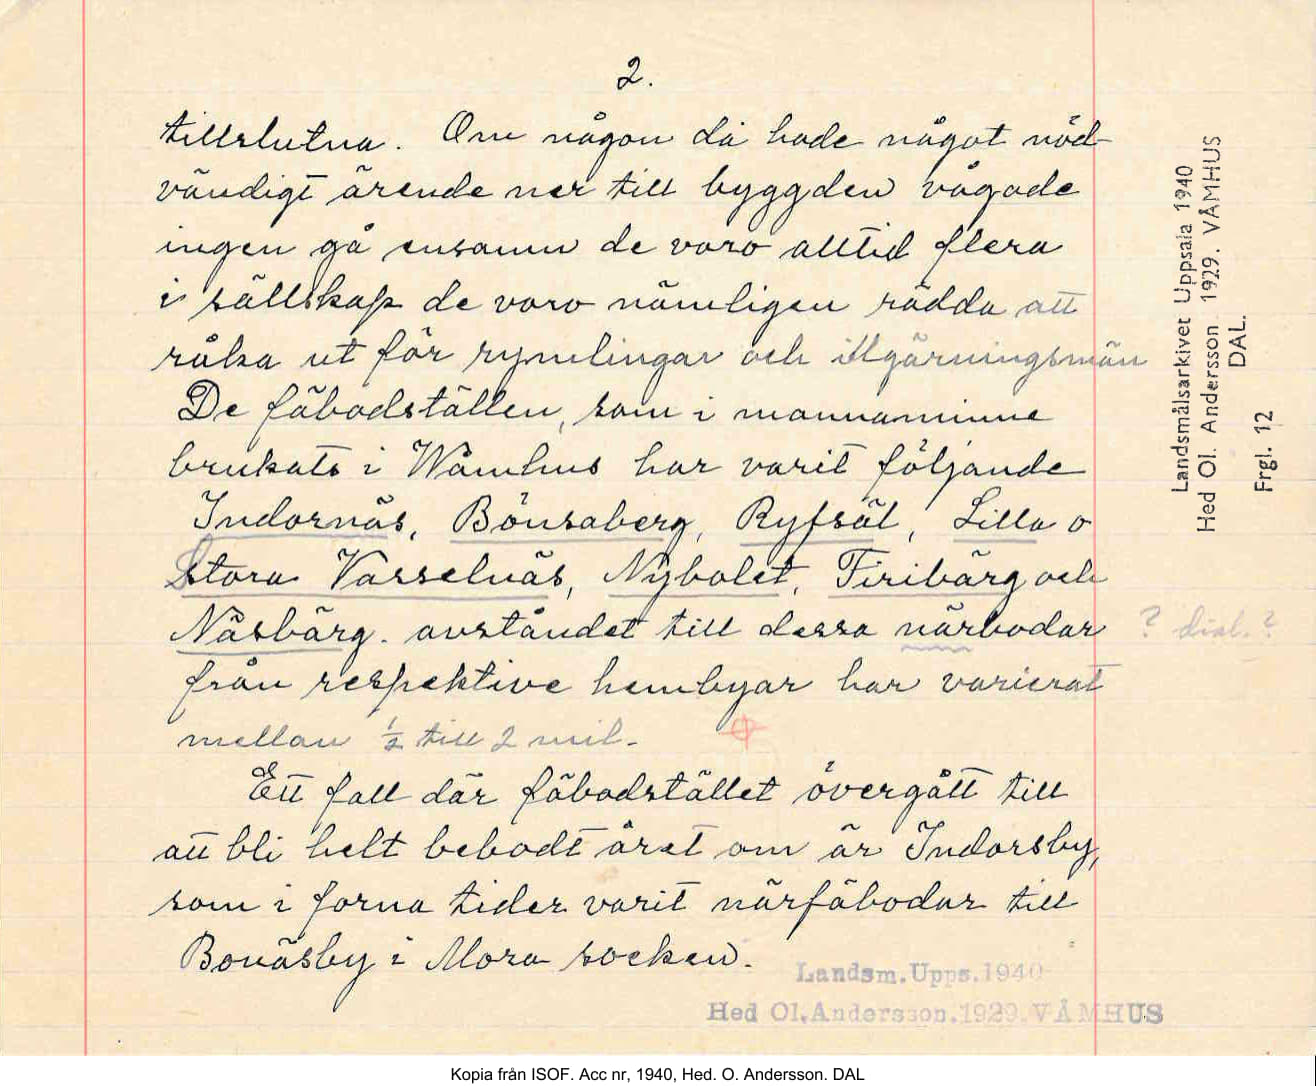 2.
tillslutna. Om någon då hade något nöd-
vändigt ärende ner till byggden vågade
ingen gå ensamm de voro alltid flera
i sällskap de voro nämligen rädda att
råka ut för rymlingar och illgärningsmän
De fäbodställen, som i mannaminne
brukats i Wåmhus har varit följande
Indornäs, Bönsaberg, Ryfsäl, Lilla o
Stora Vasselnäs, Nybolet, Firibärg och
Näsbärg. avståndet till dessa närbodar ? dial. ?
från respektive hembyar har varierat
mellan ½ till 2 mil.
Ett fall där fäbodstället övergått till
att bli helt bebodt året om är Indorsby,
som i forna tider varit närfäbodar till
Bonäsby i Mora socken.
Landsm.Upps.1940
Hed Ol.Andersson.1929.VÅMHUS
Landsmålsarkivet Uppsala 1940
Hed Ol. Andersson 1929. VÅMHUS
DAL.
Frgl. 12
Kopia från ISOF. Acc nr, 1940, Hed. O. Andersson. DAL